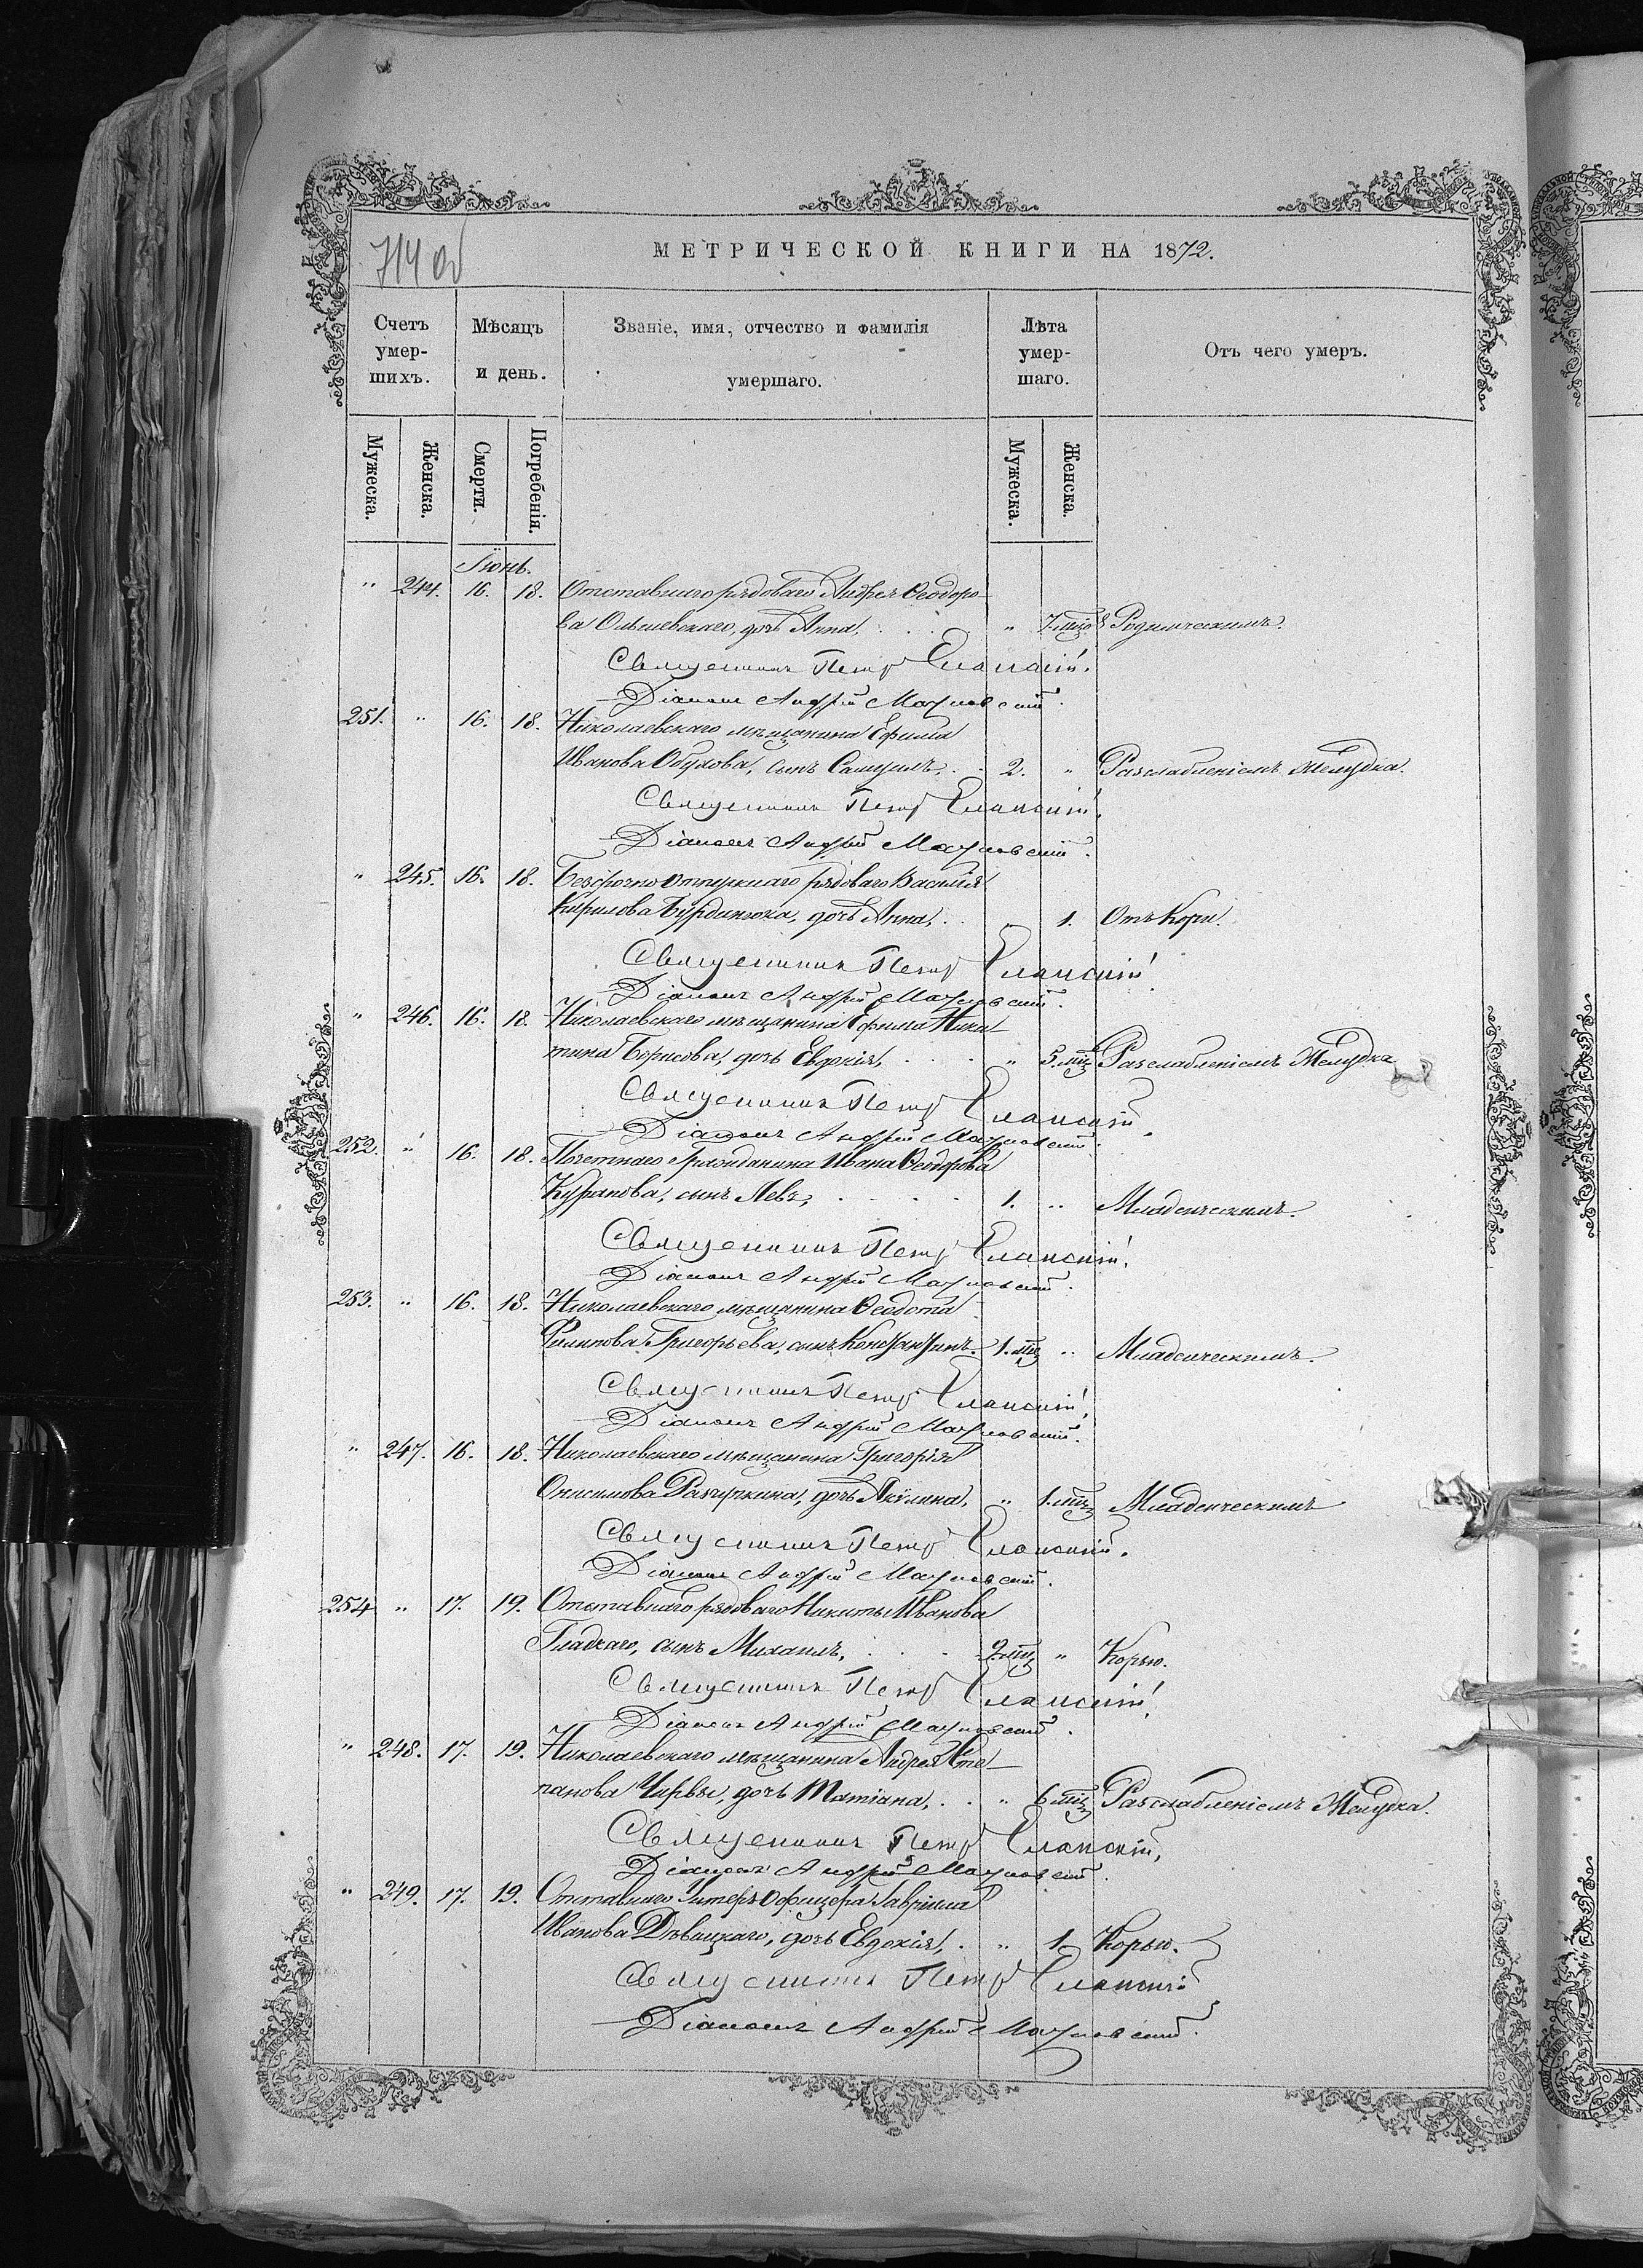 714 об
МЕТРИЧЕСКОЙ КНИГИ НА 1872.
Счетъ умер-шихъ.
Мѣсяцъ и день.
Званіе, имя, отчество и фамилія умершаго.
Лѣта умер-шаго.
Отъ чего умеръ.
Мужеска.
Женска.
Смерти.
Погребенія.
Мужеска.
Женска.
Іюнь.
" 244. 16. 18. Отставнаго рядоваго Андрея Ѳеодоро-
ва Ольшевскаго, дочь Анна, " 7. мцо Родимческимъ.
Священникъ Петръ Еланскій.
Діаконъ Андрей
251. " 16. 18. Николаевскаго мѣщанина Ефима
Иванова Обухова, сынъ Самуилъ, 2. " Разслабленіемъ желудка.
Священникъ Петръ Еланскій.
Діаконъ Андрей
" 245. 16. 18. Безсрочно отпускнаго рядоваго Василія
Кирилова дочь Анна, " 1. Отъ Кори.
Священникъ Петръ Еланскій
Діаконъ Андрей
" 246. 16. 18. Николаевскаго мѣщанина Ефима Ники-
тина Борисова, дочь Евдокія, " 5. мцъ Разслабленіемъ Желудка
Священникъ Петръ Еланскій.
Діаконъ Андрей
252. " 16. 18. Почетнаго Гражданина Ивана Ѳеодорова
Курапова, сынъ Левъ, 1. " Младенческимъ.
Священникъ Петръ Еланскій.
Діаконъ Андрей
253. " 16. 18. Николаевскаго мѣщанина Ѳеодота
Филипова Григорьева, сынъ Константинъ. 1. мцъ " Младенческимъ.
Священникъ Петръ Еланскій.
Діаконъ Андрей
" 247. 16. 18. Николаевскаго мѣщанина Григорія
Онисимова дочь Акулина, " 1. мцъ Младенческимъ
Священникъ Петръ Еланскій.
Діаконъ Андрей
254 " 17. 19. Отставнаго рядоваго Никиты Иванова
Гладкаго, сынъ Михаилъ, 9. мцъ " Корью.
Священникъ Петръ Еланскій.
Діаконъ Андрей
" 248. 17. 19. Николаевскаго мѣщанина Андрея Сте-
панова Чирвы, дочь Татіана, " 6 мцъ Разслабленіемъ Желудка.
Священникъ Петръ Еланскій,
Діаконъ Андрей
" 249. 17. 19. Отставнаго Унтеръ офицера Гавріила
Иванова Дѣвицкаго, дочь Евдокія, " 1. Корью.
Священникъ Петръ Еланскій
Діаконъ Андрей